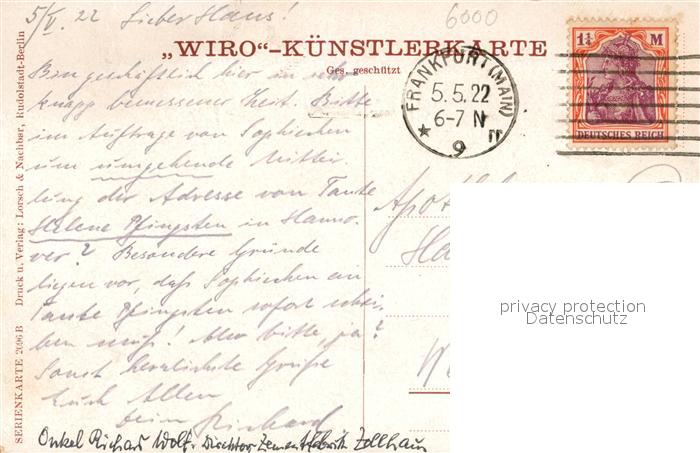 5/V. 22 Lieber Hans!
6000
„WIRO“-KÜNSTLERKARTE
Ges. geschützt
Bin geschäftlich hier in sehr
knapp bemessener Zeit. Bitte
im Auftrage von Sophiechen
um umgehende Mittei-
lung der Adresse von Tante
Helene Pfingsten in Hanno-
ver? Besondere Gründe
liegen vor, daß Sophiechen an
Tante Pfingsten sofort schrei-
ben muß! Also bitte, ja?
Sonst herzlichste Grüße
Euch Allen
Richard
Onkel Richard Wolf. Direktor Zementfabrik Zollhaus
FRANKFURT (MAIN)
5.5.22
6-7 N
* 9 n
1¼ M
DEUTSCHES REICH
privacy protection
Datenschutz
SERIENKARTE 2096 B Druck u. Verlag: Lorsch & Nachbar, Rudolstadt-Berlin